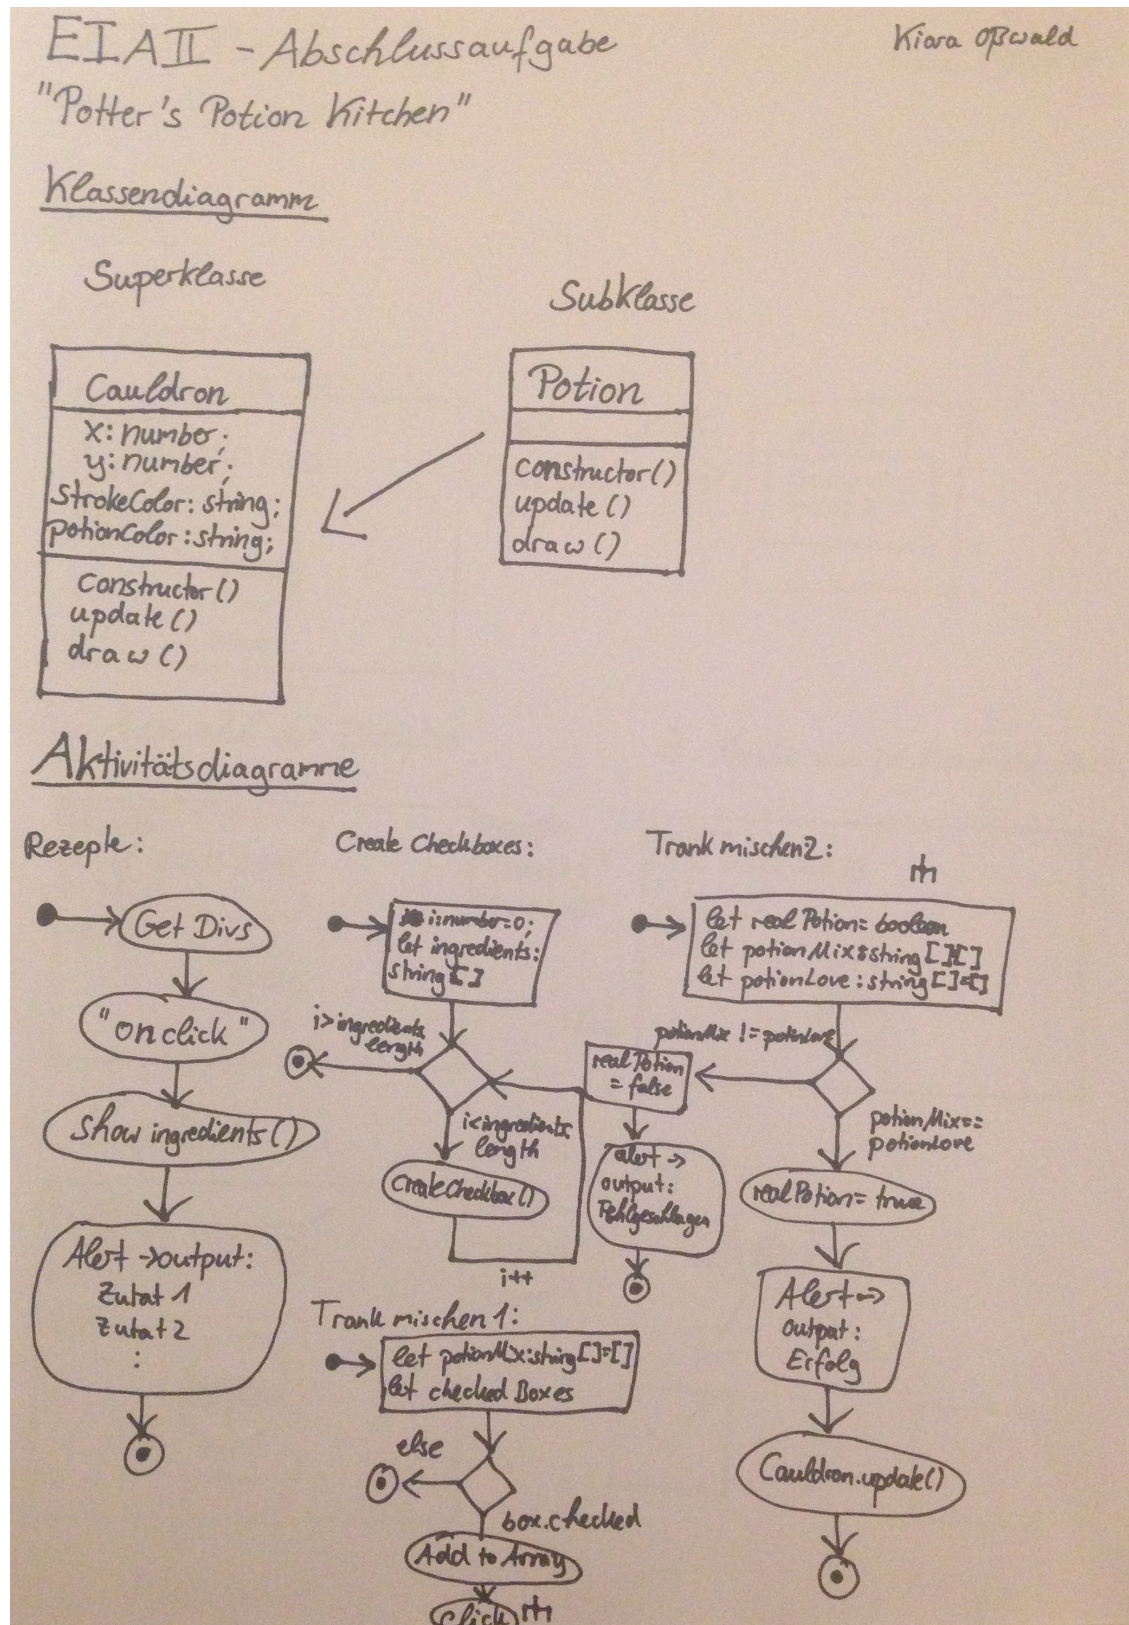 EIA II - Abschlussaufgabe
Kiara Oßwald
"Potter's Potion Kitchen"
Klassendiagramm
Superklasse
Cauldron
x: number;
y: number;
StrokeColor: string;
potionColor: string;
constructor()
update()
draw()
Subklasse
Potion
constructor()
update()
draw()
Aktivitätsdiagramme
Rezepte:
Get Divs
"onclick"
Show ingredients()
Alert ->output:
Zutat 1
Zutat 2
:
Create Checkboxes:
i:number=0;
let ingredients:
string[]
i>ingredients.
length
i<ingredients.
length
createCheckbox()
i++
Trank mischen 1:
let potionMix:string[]=[]
let checked Boxes
else
box.checked
Add to Array
Click
Trank mischen2:
let realPotion= boolean
let potionMix:string[][]
let potionLove: string[]=[]
potionMix != potionLove
realPotion
= false
alert ->
output:
Fehlgeschlagen
potionMix==
potionLove
realPotion= true
Alert ->
output:
Erfolg
Cauldron.update()